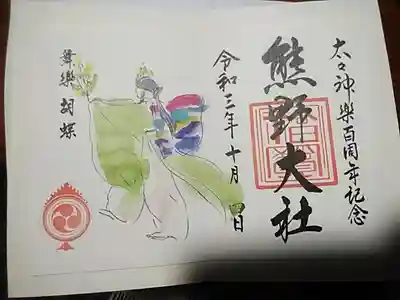 太々神樂百周年記念
熊野大社
令和三年十月四日
舞樂胡蝶